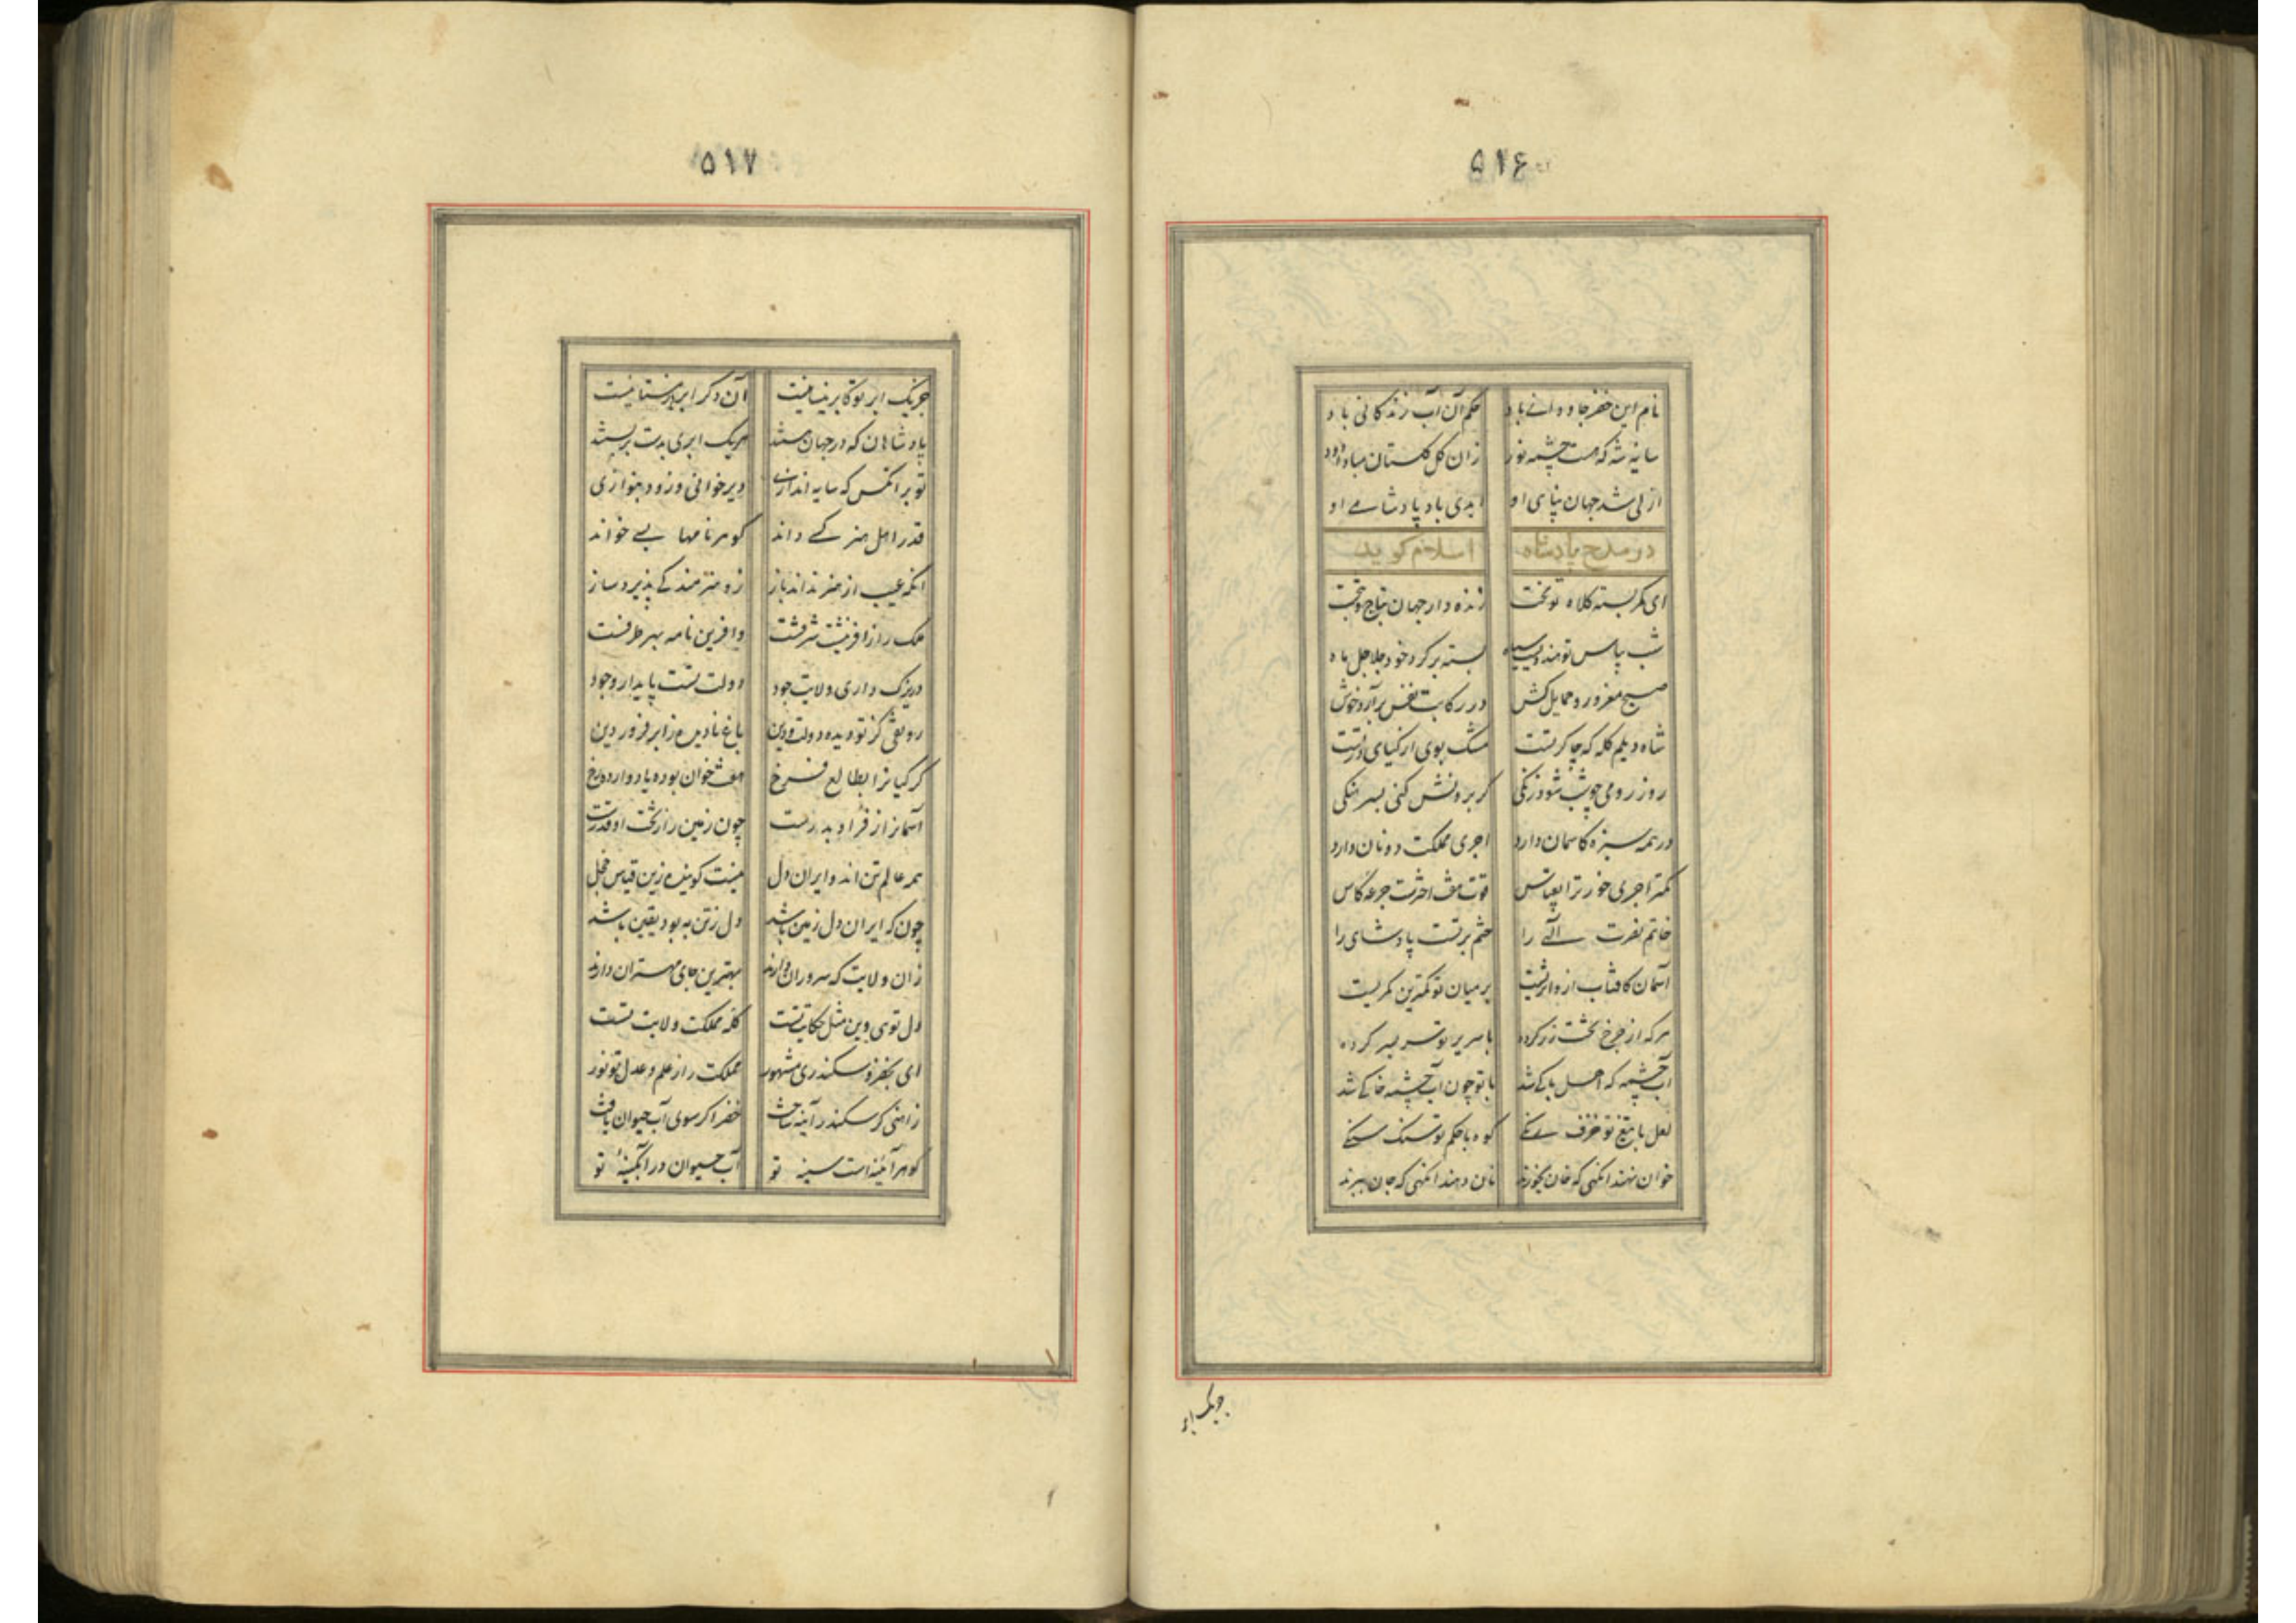 ۵۱۶
نام این خضر جاودانے باد حکم آن آب زندگانی باد
سایۀ شه که هست چشمه نور زان گل گلستان مبادا دور
ازلی شد جهان پناهی او ابدی باد پادشاهے او
در مدح پادشاه اسلام گوید
ای کمر بسته کلاه تو بخت زنده دار جهان بتاج و تخت
شب بپاس تو هندویی سیاه بسته بر گرد خود جلاجل ماه
صبح مغرور و حمایل کش در رکابت نفس برآرد خوش
شاه دیلم کله که چاکر تست مشک بوی از کیای در تست
روز رومی چو شب شود زنگی گر برونش کنی بسرهنگی
در همه سبزه کاسمان دارد اجری مملکت دو نان دارد
کمتر اجری خور ترا بقیاس قوت هفت اخترست جرعه کاس
خاتم نصرت الهے را ختم بر تست پادشاهی را
آسمان کافتاب ازو اثریست بر میان تو کمترین کمریست
هر که از چرخ تخت زر کرده با سریر تو سر بسر کرده
آب چشمه که اصل پاکے شد با تو چون آب چشمه خاکے شد
لعل با تیغ تو خزف رنگے کوه با حکم تو سبک سنگے
خوان نهند انگهی که خان بخورند نان دهند انگهی که جان ببرند
جزیک ابر
۵۱۷
جزیک ابر تو کابر نیسانیست آن دگر ابرها زمستانیست
پادشاهان که در جهان هستند هریک ابری بدست بربستند
تو بر انکس که سایه اندازی دیر خوانی و زود بنوازی
قدر اهل هنر کسے داند کو هنر نامها بسے خواند
انکه عیب از هنر نداند باز زو هنرمند کے پذیرد ساز
ملک را ز افرینشت شرفست وافرین نامه بهر طرفست
در بزرگ داری ولایت جود دولت تست پایدار وجود
رونقی کز تو دیده دولت و دین باغ نادیده ز ابر فروردین
گر کیانرا بطالع فرخ هفت خوان بوده با دوازده رخ
آسمان از فر او بدرست چون زمین را ز تخت او قدرست
همه عالم تن اند و ایران دل نیست گوینده زین قیاس خجل
چون که ایران دل زمین باشد دل ز تن به بود یقین باشد
زان ولایت که سروران دارند بهترین جای مهتران دارند
دل توی وین مثل حکایت تست کله مملکت ولایت تست
ای بخضر و سکندری مشهور مملکت را ز علم و عدل تو نور
ز اهنی گر سکندر آینه ساخت خضر اگر سوی آب حیوان تاخت
گوهر آئینه است سینه تو آب حیوان در آبگینۀ تو